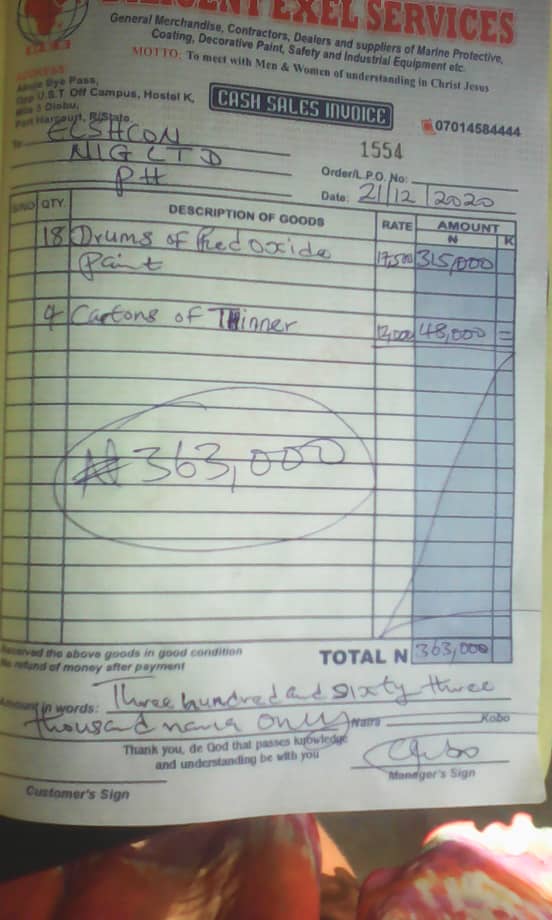 EXEL SERVICES
General Merchandise, Contractors, Dealers and suppliers of Marine Protective,
Coating, Decorative Paint, Safety and Industrial Equipment etc.
MOTTO: To meet with Men & Women of understanding in Christ Jesus
ADDRESS:
Bye Pass,
Opp U.S.T Off Campus, Hostel K,
Mile 3 Diobu,
Port Harcourt, R/State
CASH SALES INVOICE
07014584444
1554
To ELSHCON
NIG LTD
PH
Order/L.P.O. No:
Date: 21/12/2020
S/NO QTY. DESCRIPTION OF GOODS RATE AMOUNT
N K
18 Drums of Red oxide
Paint 17,500 315,000
4 Cartons of Thinner 12,000 48,000 =
₦363,000
Received the above goods in good condition
No refund of money after payment
TOTAL N 363,000
Amount in words: Three hundred and sixty three
thousand naira only Naira Kobo
Thank you, de God that passes knowledge
and understanding be with you
Manager's Sign
Customer's Sign